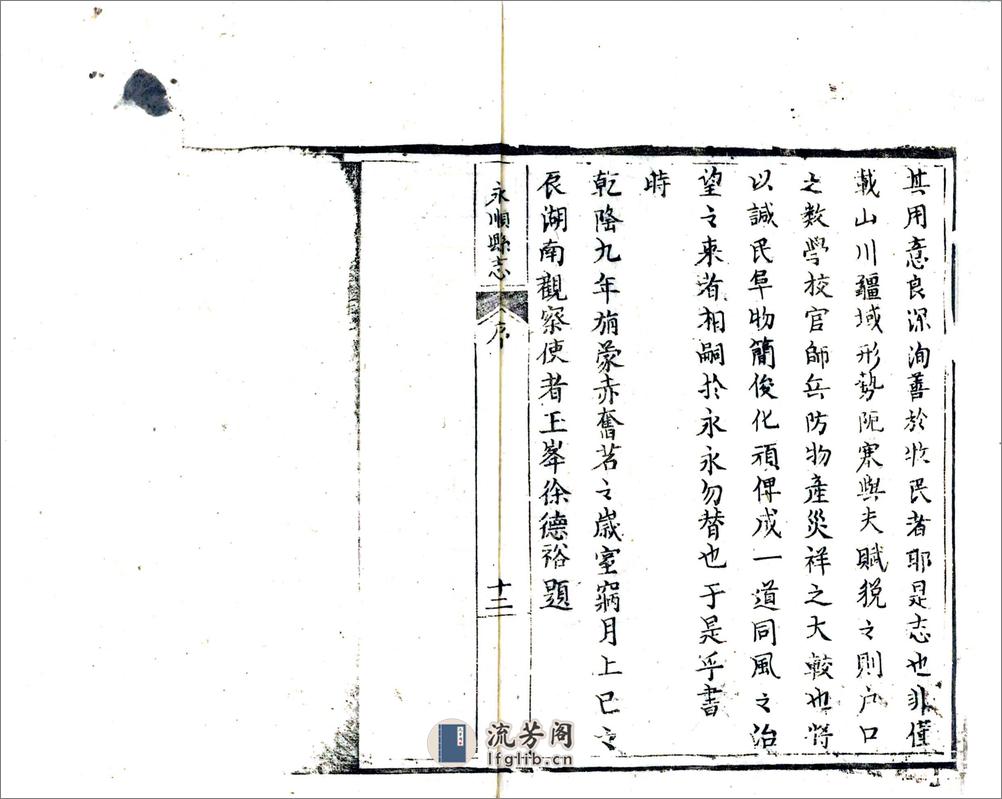 其用意良深洵善於牧民者耶是志也非僅
載山川疆域形勢阨塞與夫賦稅之則户口
之数學校官師兵防物產災祥之大較也將
以諴民阜物簡俊化頑俾成一道同風之治
望之來者相嗣於永永勿替也于是乎書
時
乾隆九年旃蒙赤奮若之嵗室窩月上巳之
辰湖南觀察使者玉峯徐德裕題
永順縣志
序
十二
流芳阁
lfglib.cn